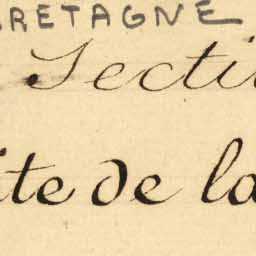 BRETAGNE
Secti
ite de la